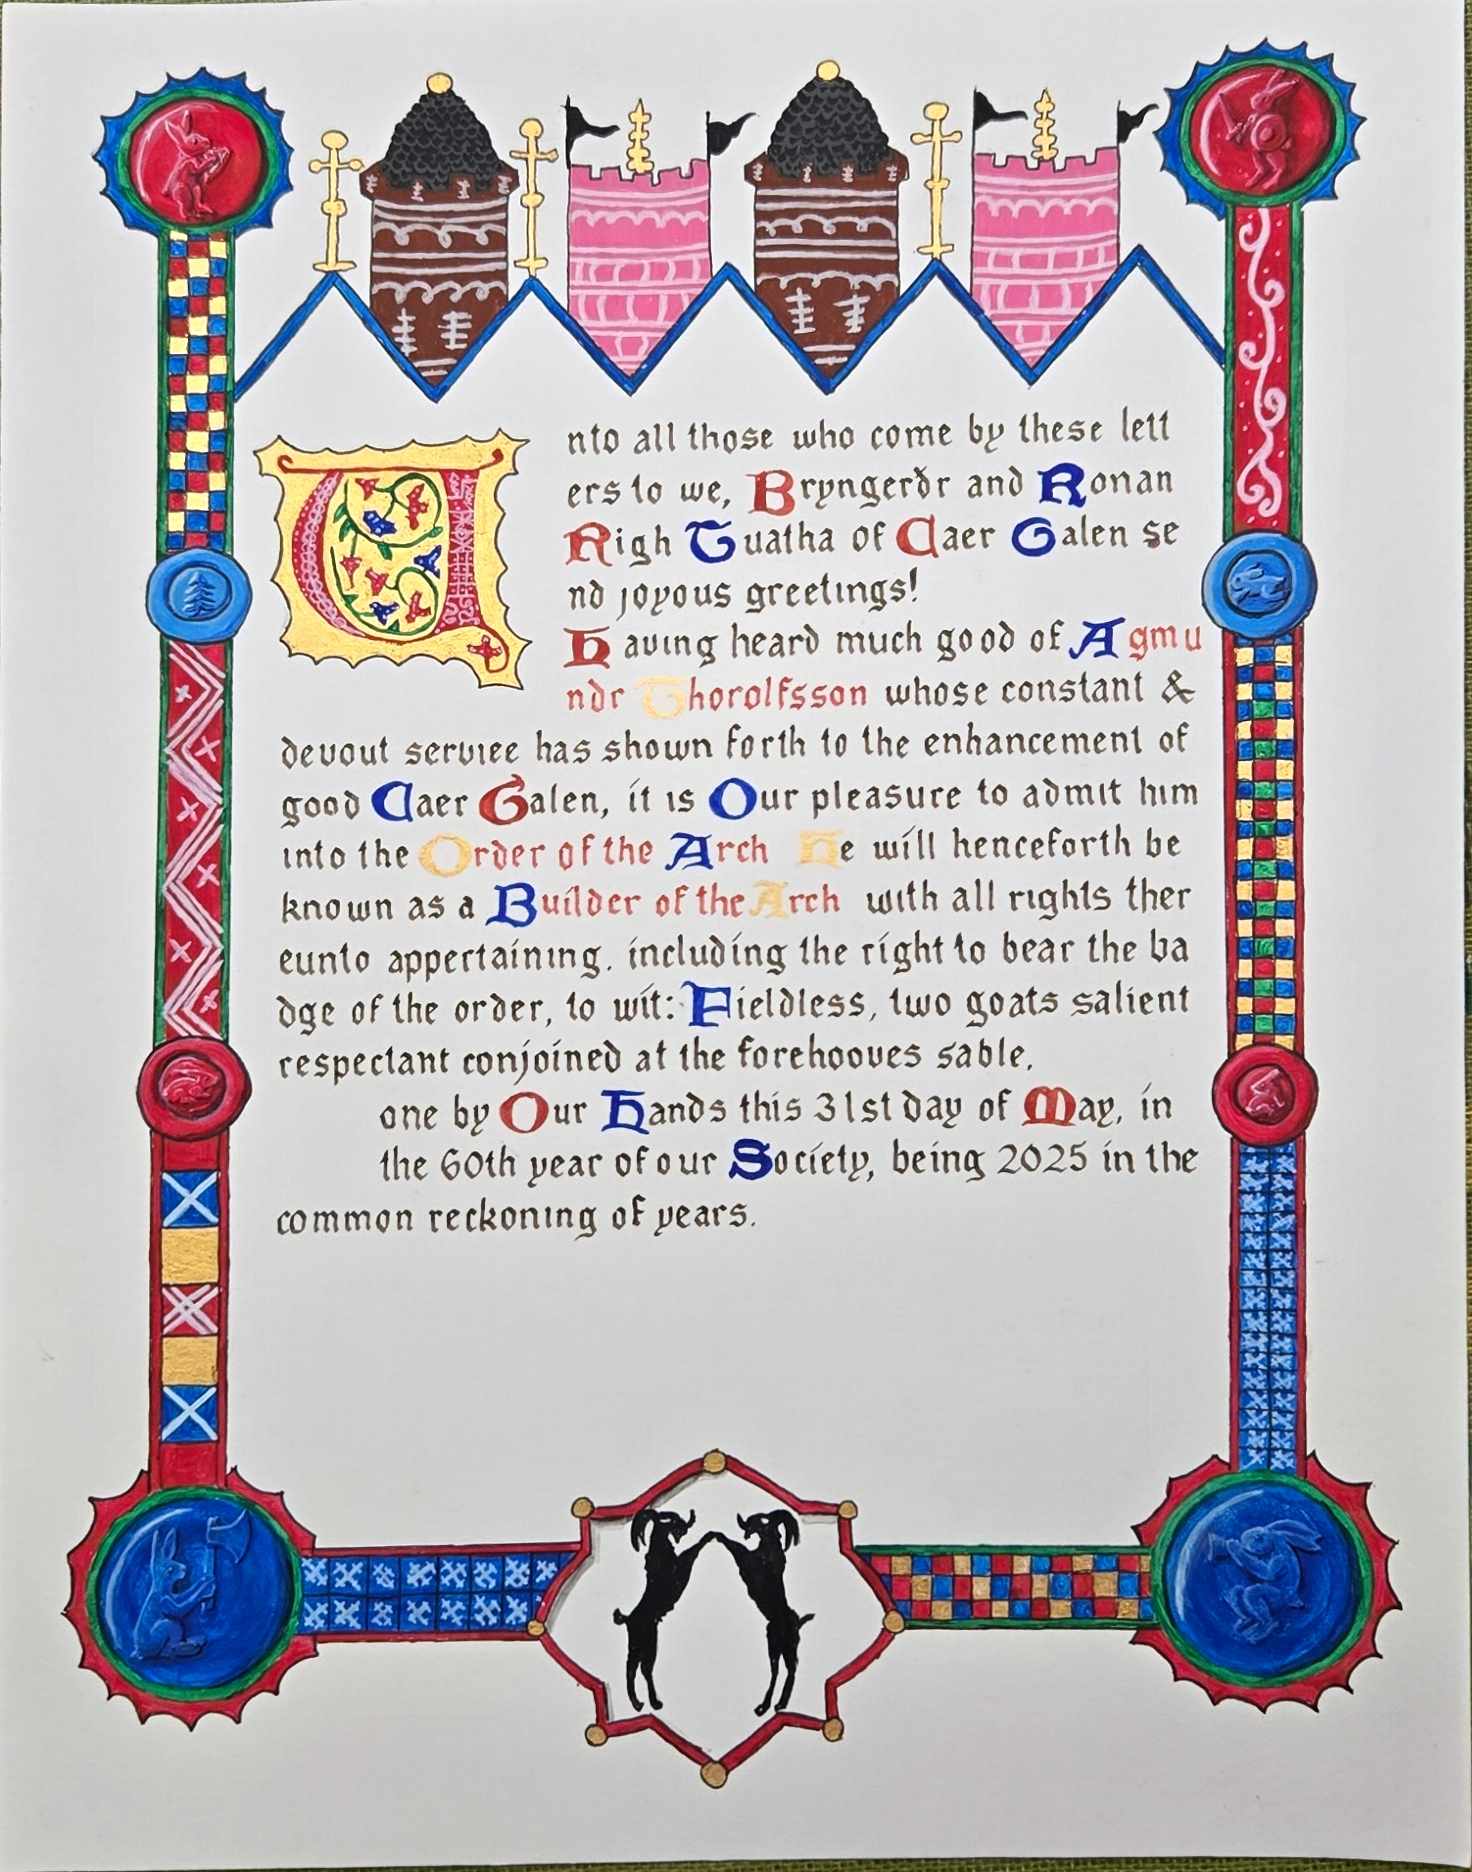 Unto all those who come by these lett
ers to we, Bryngerðr and Ronan
Righ Tuatha of Caer Galen se
nd joyous greetings!
Having heard much good of Agmu
ndr Thorolfsson whose constant &
devout serviee has shown forth to the enhancement of
good Caer Galen, it is Our pleasure to admit him
into the Order of the Arch He will henceforth be
known as a Builder of the Arch with all rights ther
eunto appertaining. including the right to bear the ba
dge of the order, to wit: Fieldless, two goats salient
respectant conjoined at the forehooves sable.
one by Our Hands this 31st day of May, in
the 60th year of our Society, being 2025 in the
common reckoning of years.